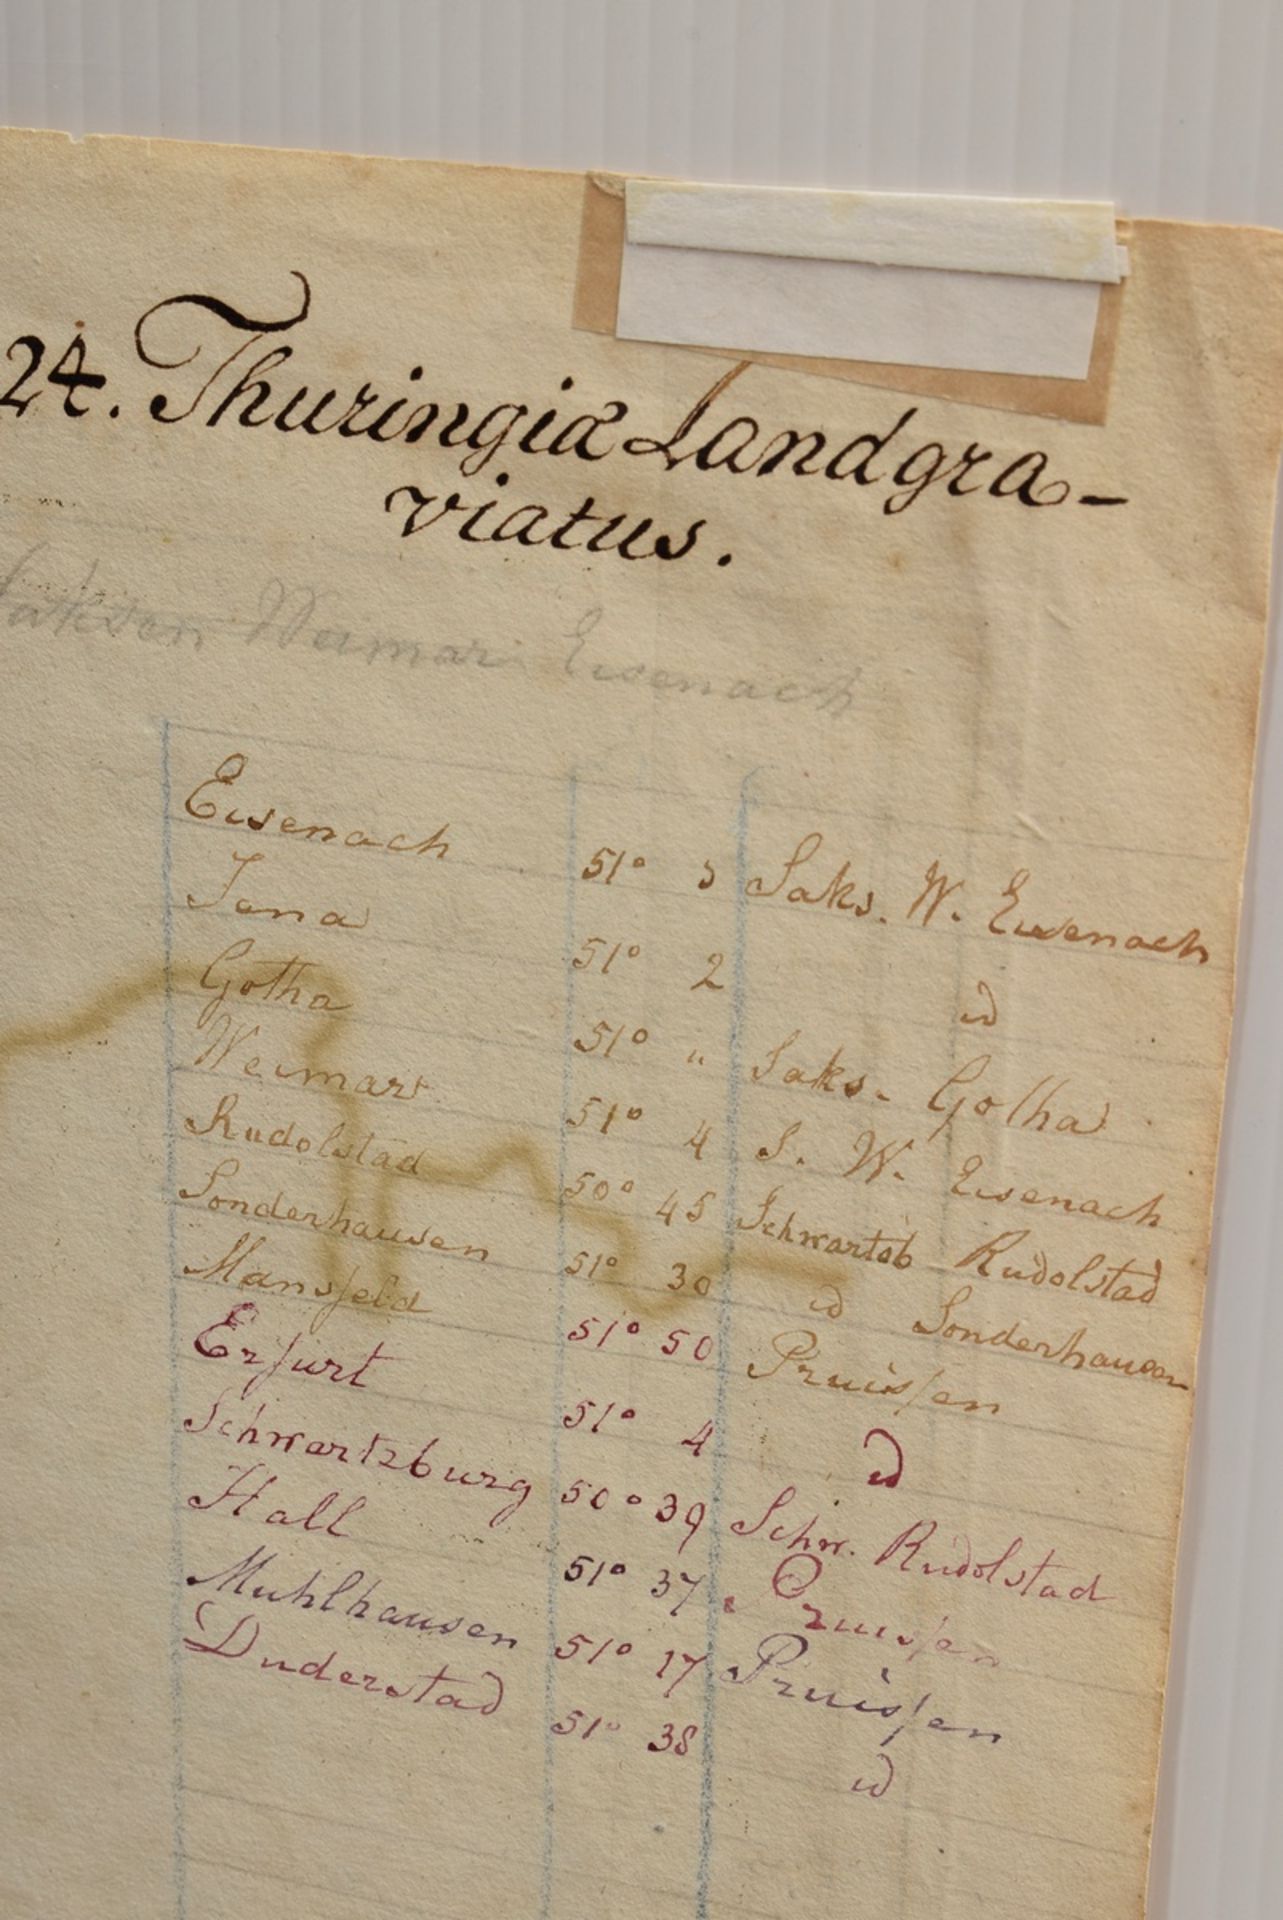 24. Thuringiæ Landgra-
viatus.
Saksen Weimar Eisenach
Eisenach 51° 5 Saks. W. Eisenach
Jena 51° 2 id
Gotha 51° " Saks. Gotha
Weimar 51° 4 S. W. Eisenach
Rudolstad 50° 45 Schwartsb Rudolstad
Sonderhausen 51° 30 id Sonderhausen
Mansfeld 51° 50 Pruissen
Erfurt 51° 4 id
Schwartzburg 50° 39 Schw. Rudolstad
Hall 51° 37 Pruissen
Muhlhausen 51° 17 Pruissen
Duderstad 51° 38 id